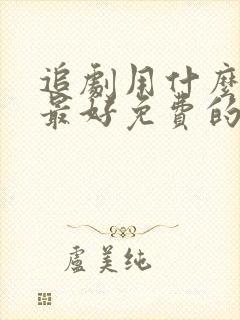 追劇用什麼
最好免費的
盧美纯